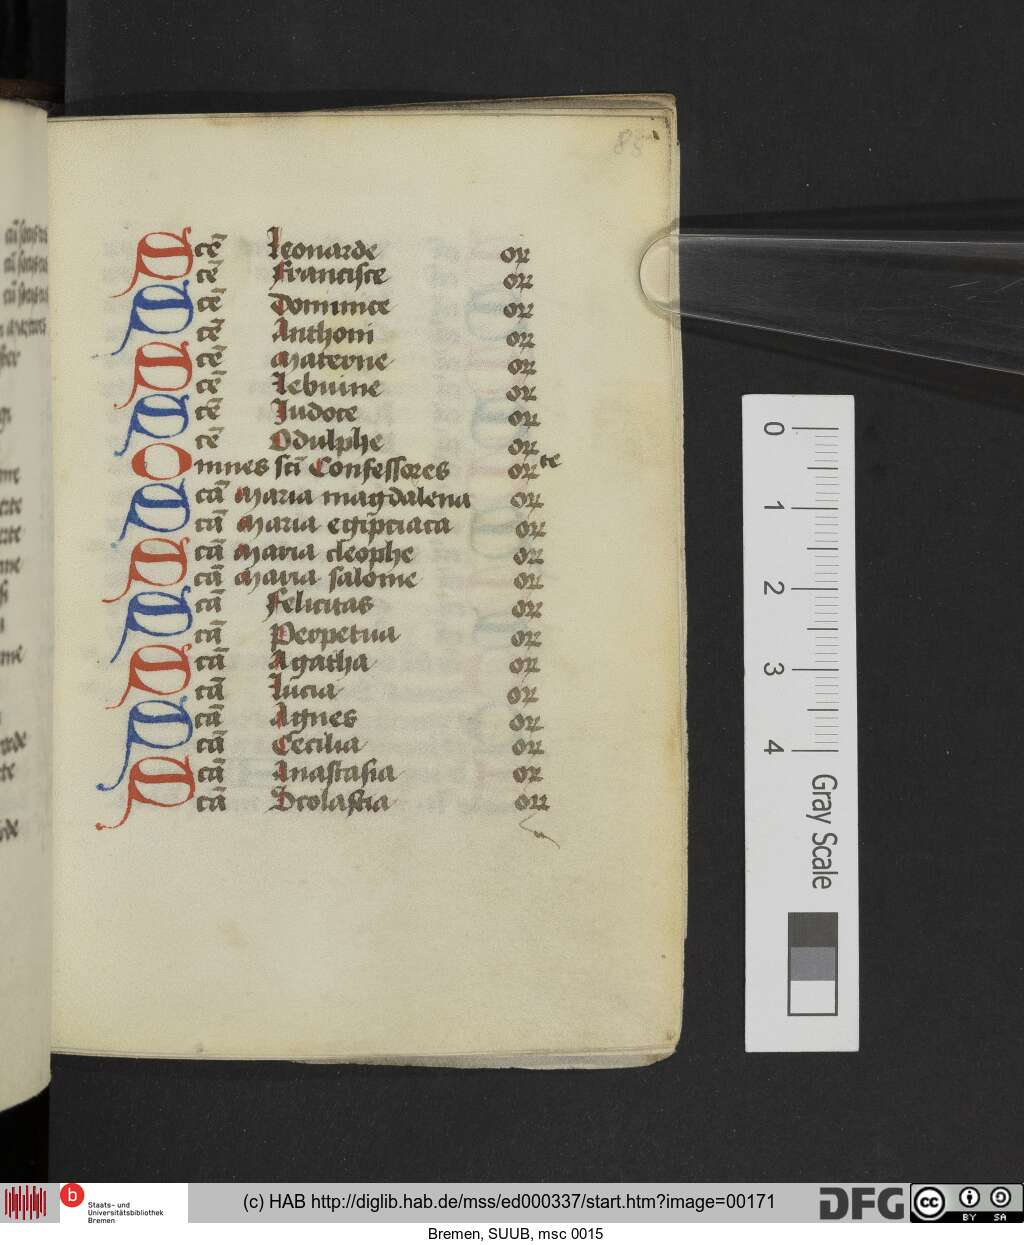 85
S cē Leonarde or
cē Francisce or
S cē Dominice or
cē Anthoni or
S cē Materne or
cē Lebuine or
S cē Iudoce or
cē Odulphe or
O mnes scī Confessores or te
S cā Maria magdalena or
cā Maria egipciaca or
S cā Maria cleophe or
cā Maria salome or
S cā Felicitas or
cā Perpetua or
S cā Agatha or
cā Lucia or
S cā Agnes or
cā Cecilia or
S cā Anastasia or
cā Scolastica or
0
1
2
3
4
Gray Scale
b Staats- und
Universitätsbibliothek
Bremen
(c) HAB http://diglib.hab.de/mss/ed000337/start.htm?image=00171
DFG
cc BY SA
Bremen, SUUB, msc 0015